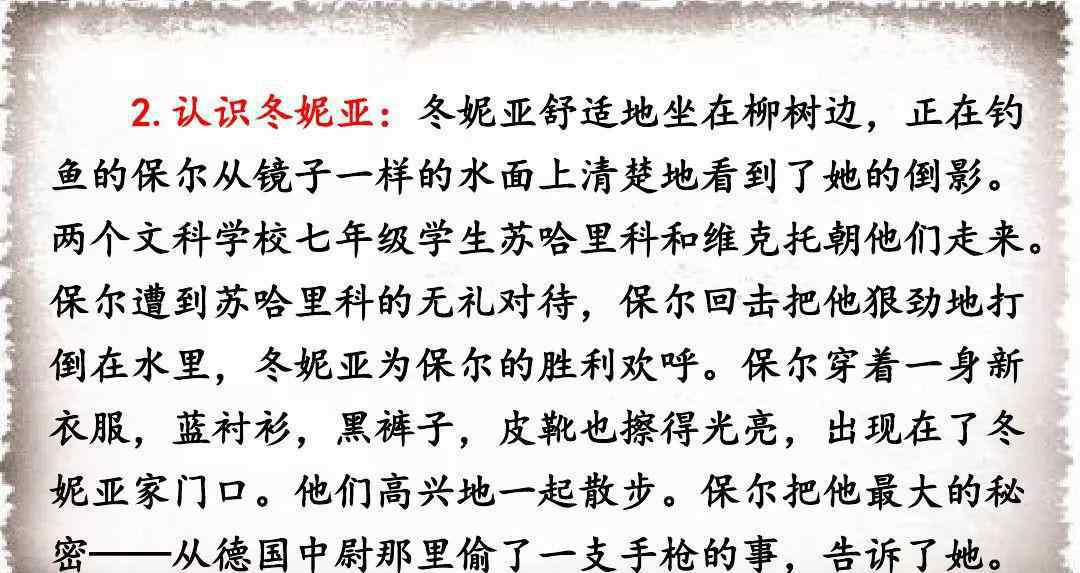 2.认识冬妮亚：冬妮亚舒适地坐在柳树边，正在钓
鱼的保尔从镜子一样的水面上清楚地看到了她的倒影。
两个文科学校七年级学生苏哈里科和维克托朝他们走来。
保尔遭到苏哈里科的无礼对待，保尔回击把他狠劲地打
倒在水里，冬妮亚为保尔的胜利欢呼。保尔穿着一身新
衣服，蓝衬衫，黑裤子，皮靴也擦得光亮，出现在了冬
妮亚家门口。他们高兴地一起散步。保尔把他最大的秘
密——从德国中尉那里偷了一支手枪的事，告诉了她。